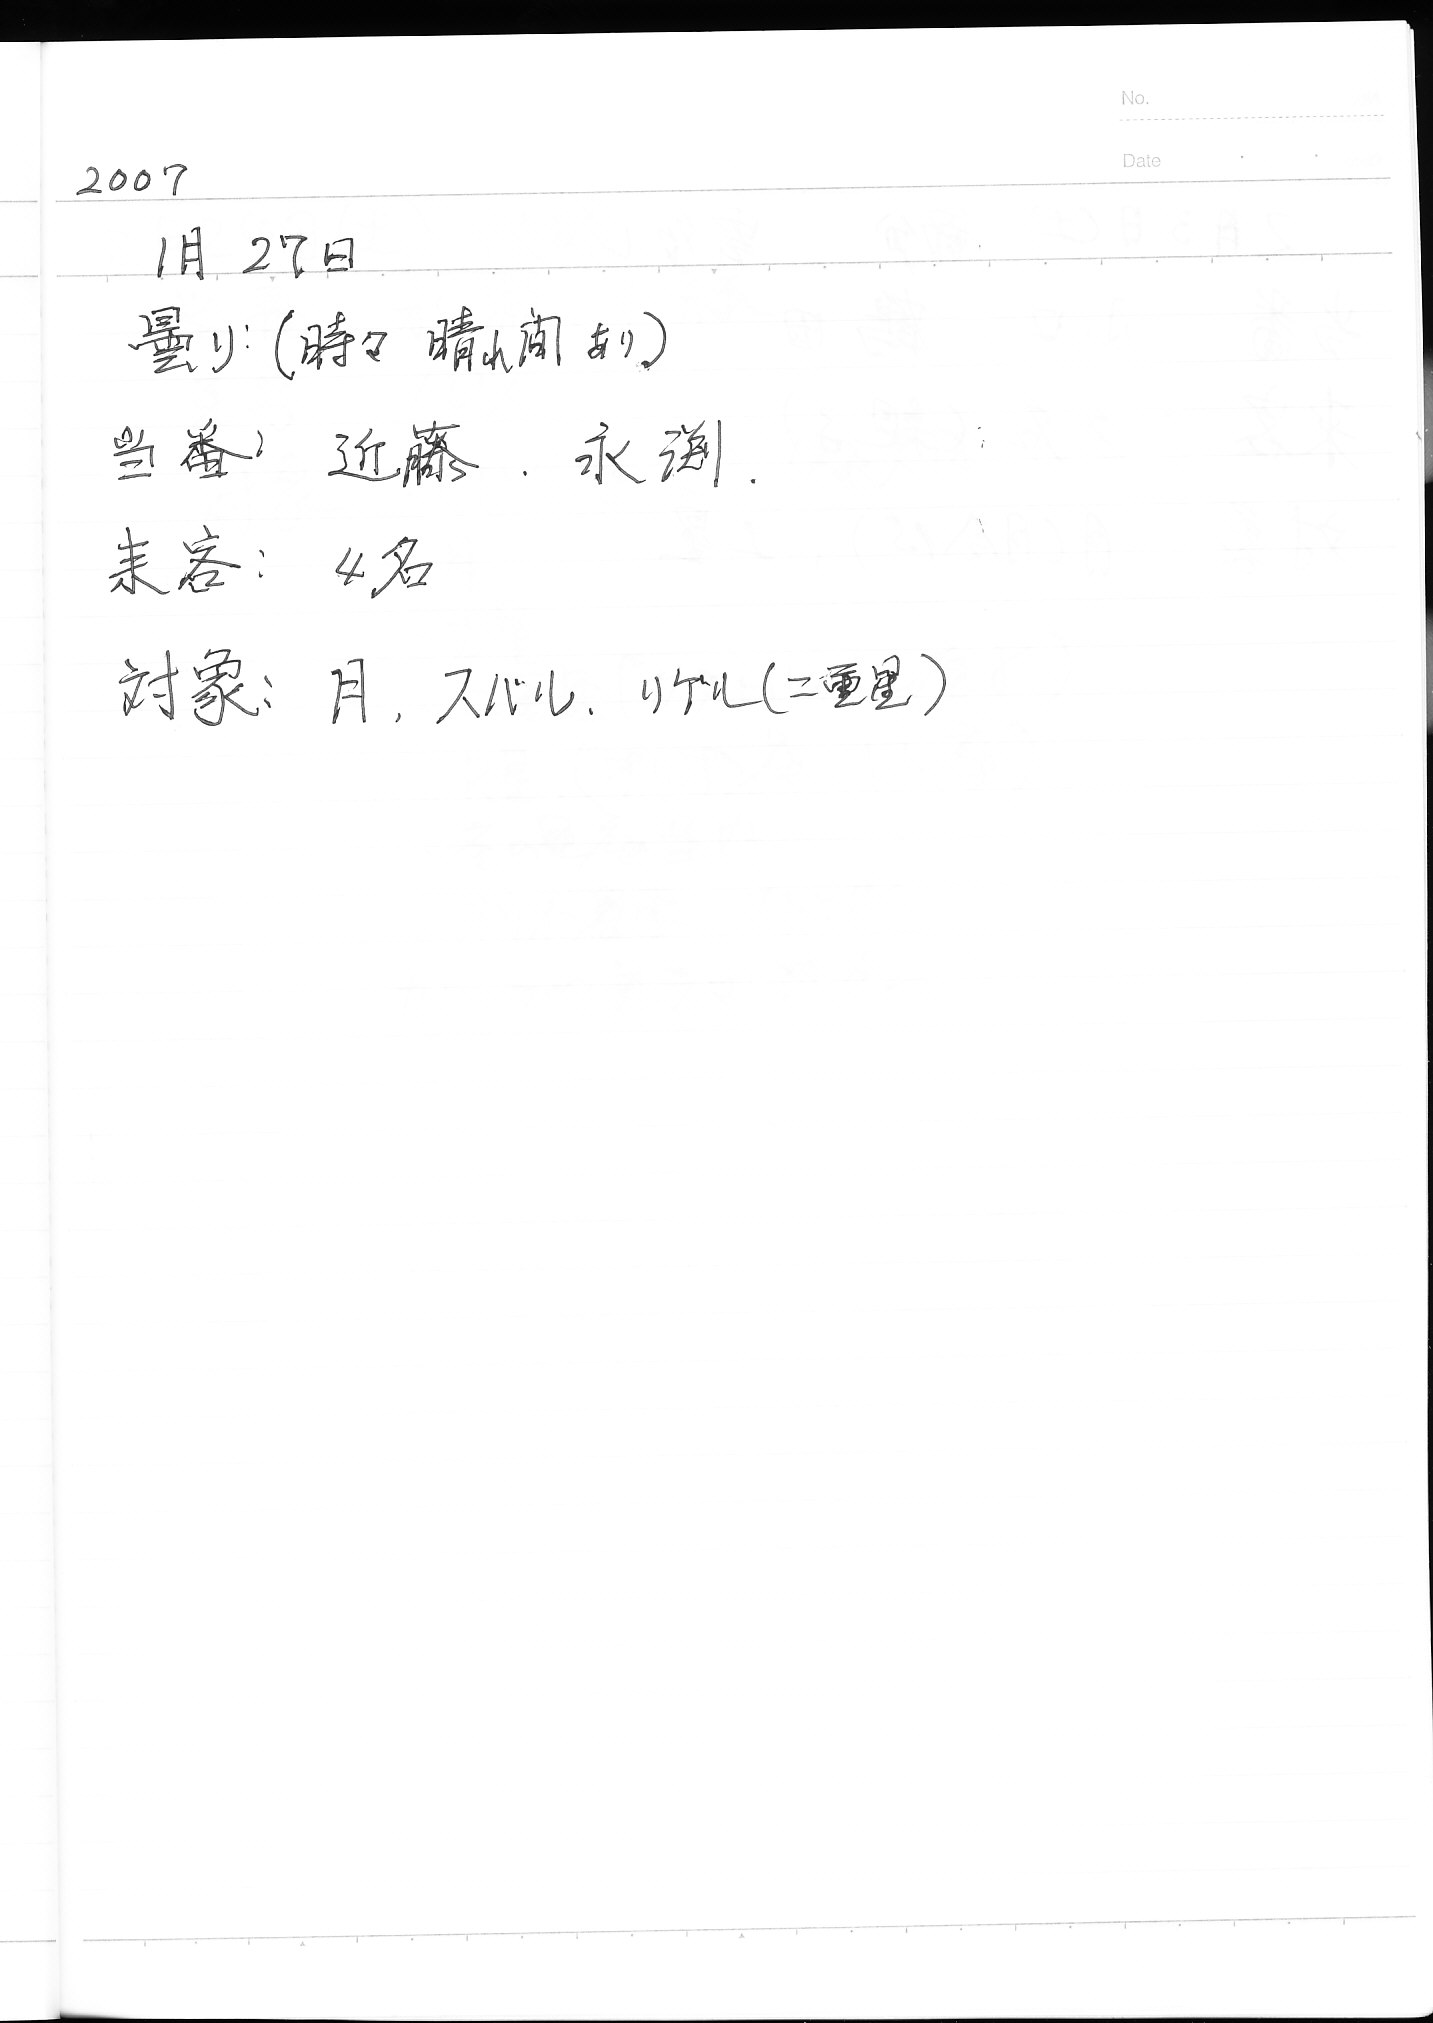 No.
Date
2007
1月 27日
曇り:(時々 晴れ間 あり)
当番: 近藤 . 永渕.
来客: 4名
対象: 月, スバル, リゲル(二重星)